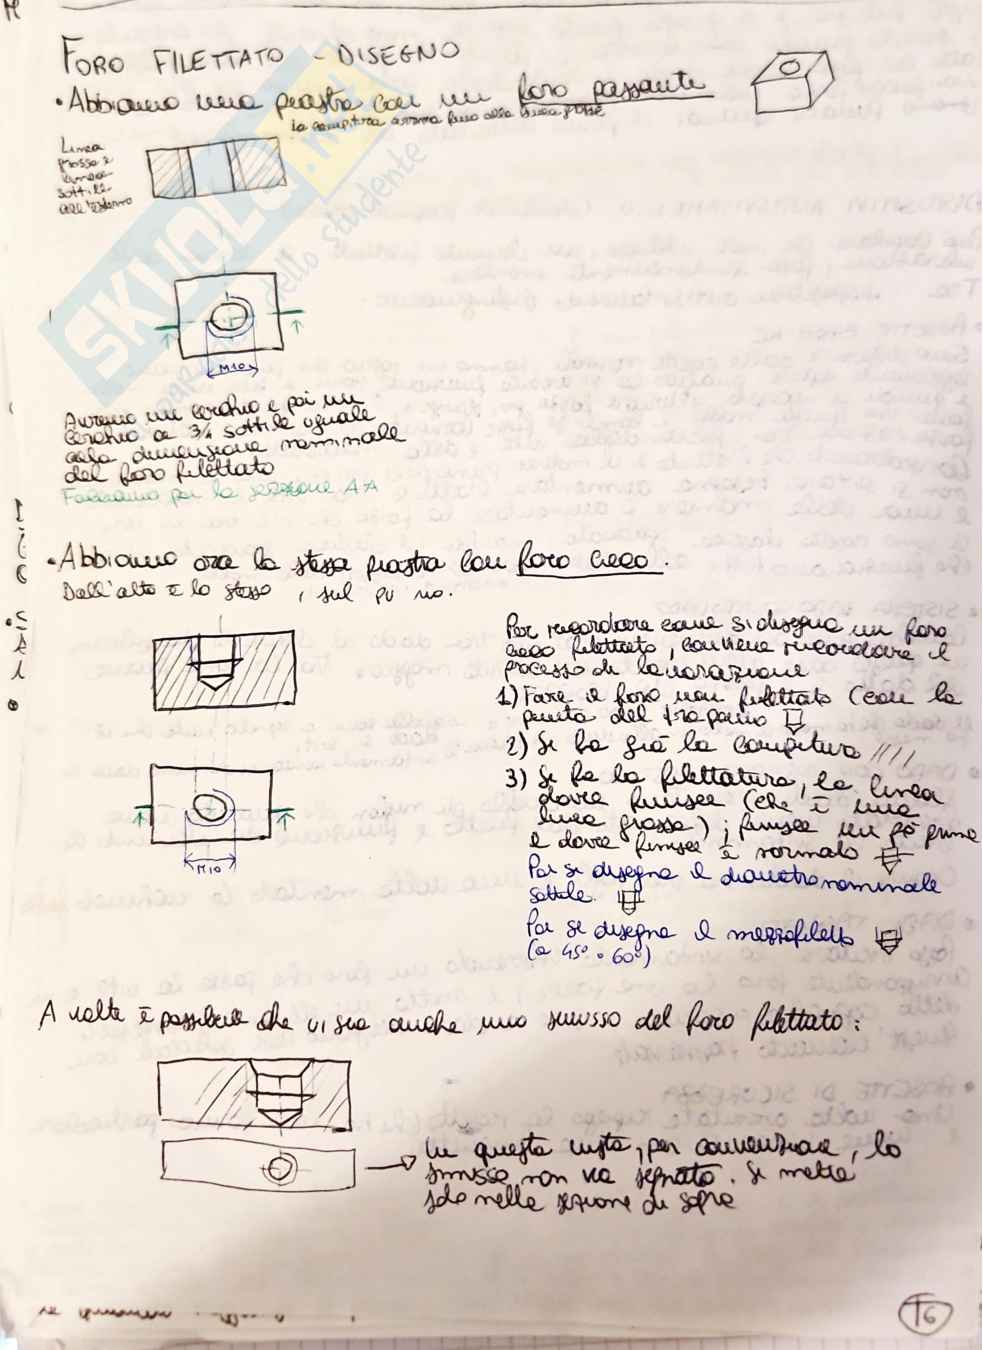 FORO FILETTATO - DISEGNO
• Abbiamo una piastra con un foro passante
la campitura arriva fino alla linea grossa
Linea
grossa e
linea
sottile
all'esterno
M10
Avremo un cerchio e poi un
cerchio a 3/4 sottile uguale
alla dimensione nominale
del foro filettato
Facciamo poi la sezione AA
• Abbiamo ora la stessa piastra con foro cieco.
Dall'alto è lo stesso, sul
Per ricordare come si disegna un foro
cieco filettato, conviene ricordare il
processo di lavorazione
1) Fare il foro non filettato (con la
punta del trapano
2) Si fa già la campitura ////
3) Si fa la filettatura, la linea
dove finisce (che è una
linea grossa); finisce un pò prima
e dove finisce è normato
Poi si disegna il diametro nominale
sottile.
Poi si disegna il mezzofiletto
(a 45° o 60°)
M10
A volte è possibile che vi sia anche uno smusso del foro filettato:
In questa vista, per convenzione, lo
smusso non va segnato. Si mette
solo nella sezione di sopra
16
SKUOLA.net
dello studente